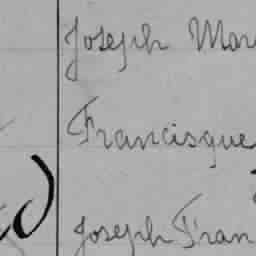 Joseph Mar
Francisque
Joseph Fran